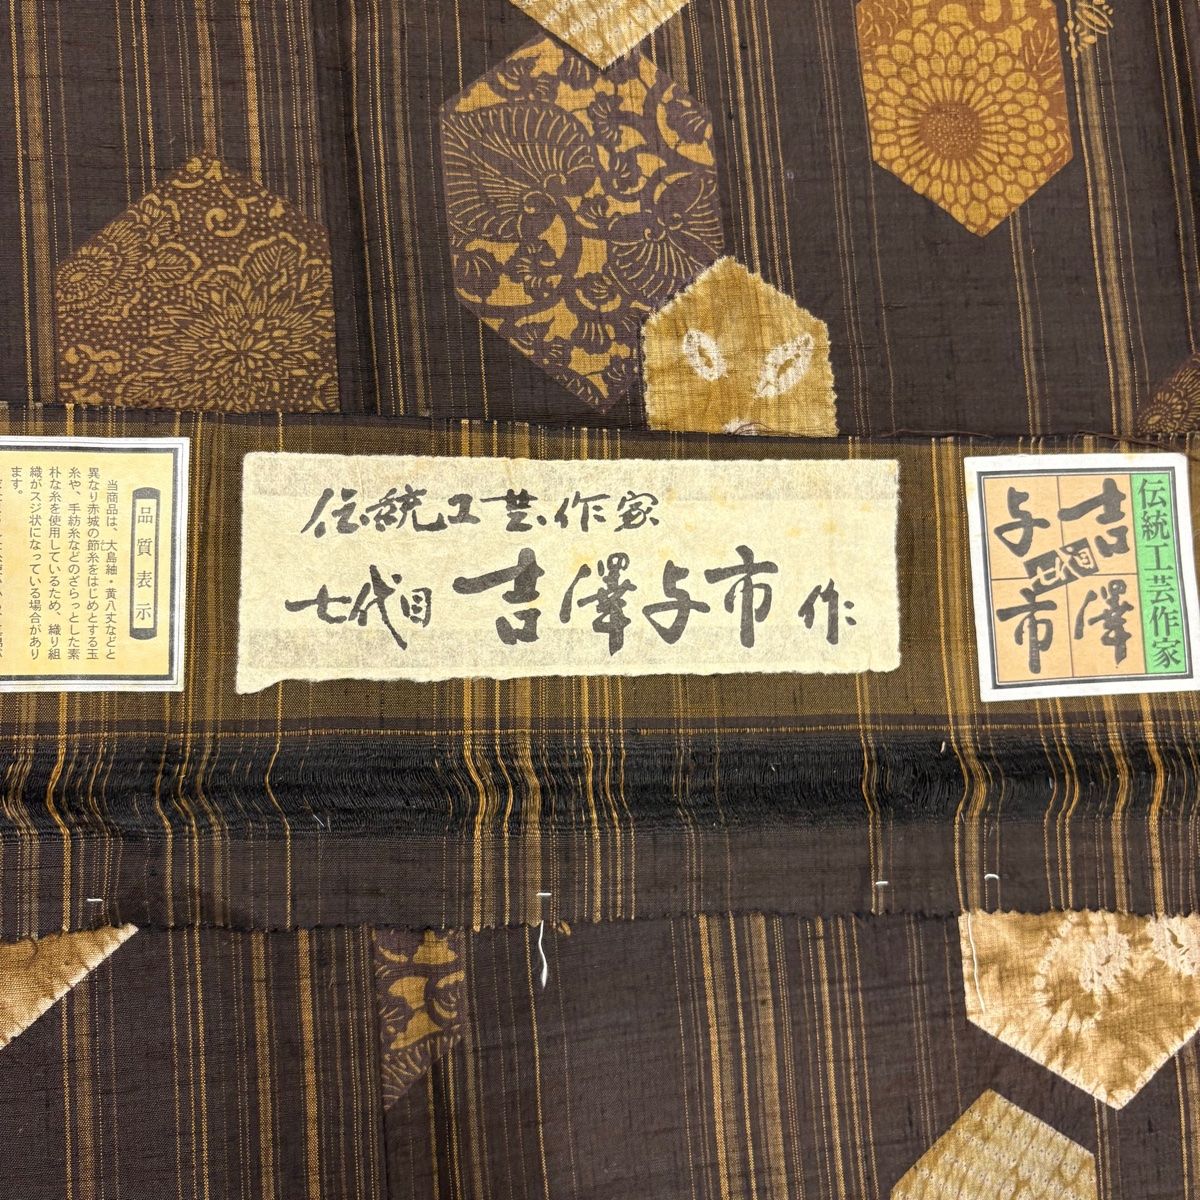 品質表示
当商品は、大島紬・黄八丈などと
異なり赤城の節糸をはじめとする玉
糸や、手紡糸などのざらっとした素
朴な糸を使用しているため、織り組
織がスジ状になっている場合があり
ます。
伝統工芸作家
七代目 吉澤与市 作
伝統工芸作家
吉澤
七代目
与市